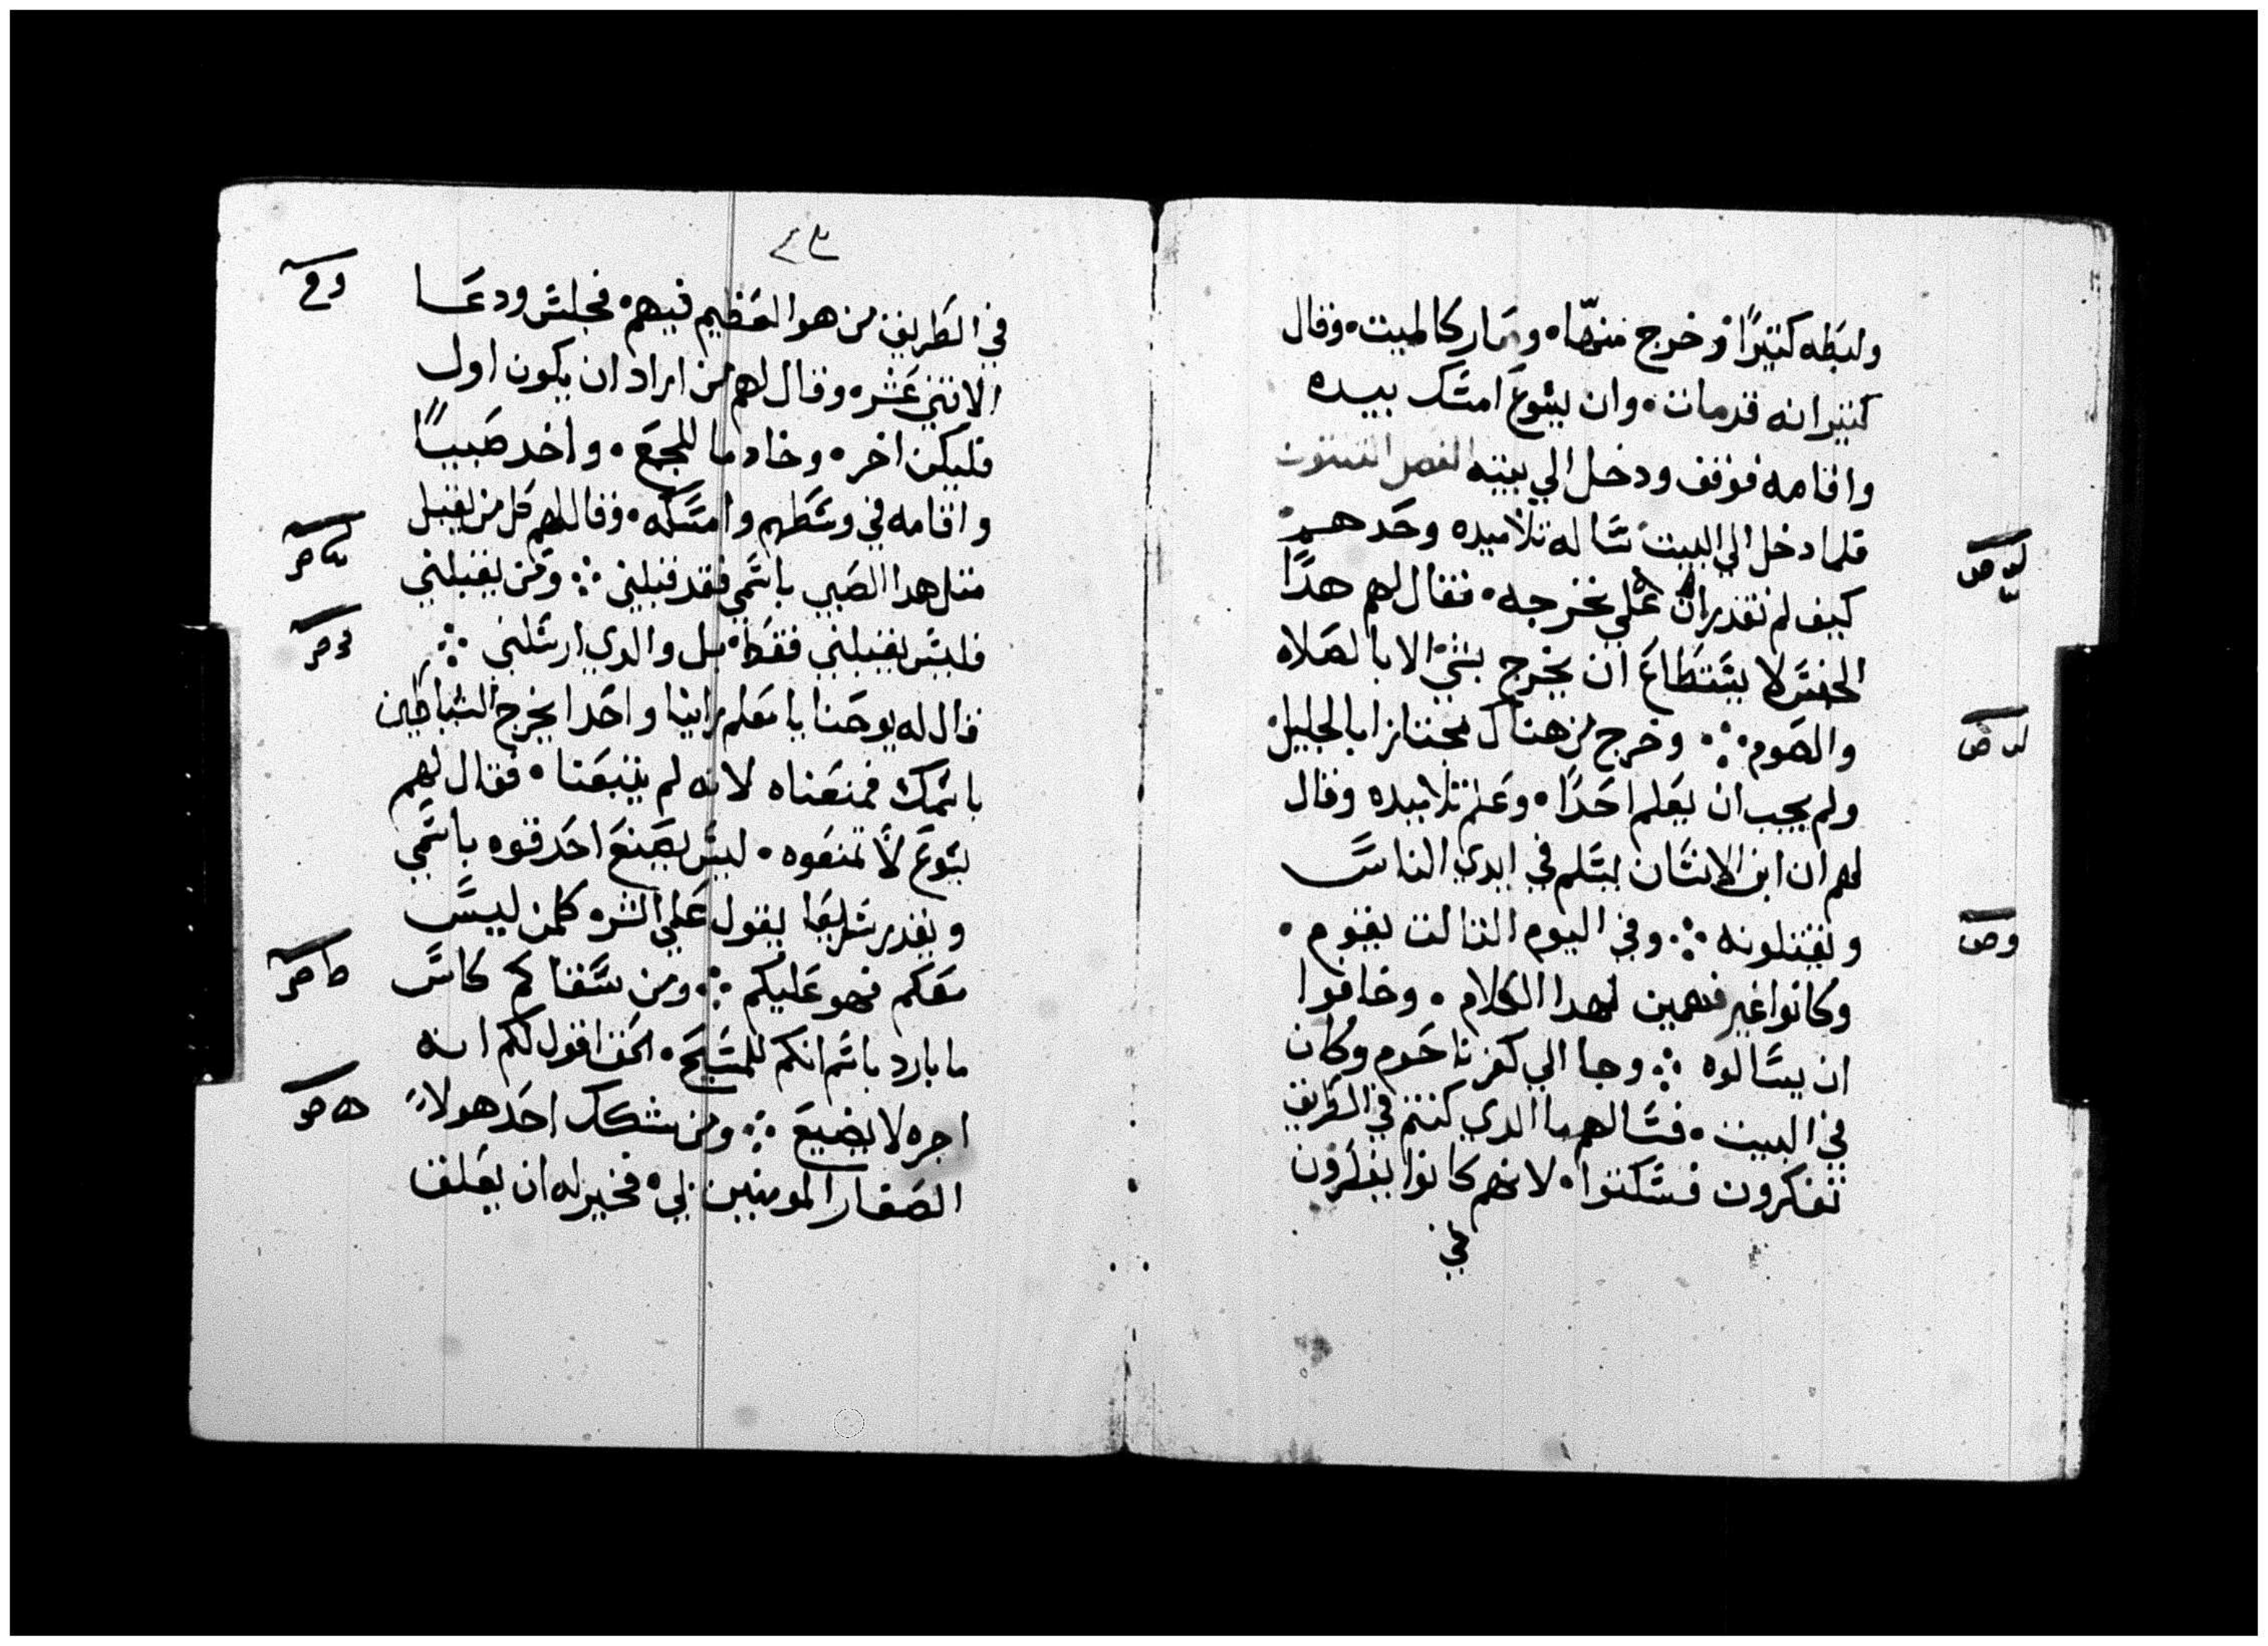 ولبطه كتيرًا وخرج منهّا، وصار كالميت، وقال
كتيرانه قدمات، وان يسوع امسَك بيده
واقامه فوقف ودخل الي بيته الفصل
فلما دخل الي البيت سَاله تلاميده وحَدهم
كيف لم نقدر ان علي نخرجه، فقال لهم هدًا
الجنسَ لا يسَتطاعَ ان يخرج بشي الا بالصَلاه
والصَوم ∴ وخرج من هناك مجتازا بالجليل
ولم يحب ان يعَلم احَدًا، وعَلم تلاميده وقال
لهم ان ابن الانسَان ليسَلم في ايدي الناسَ
ويقتلونه ∴ وفي اليوم التالت يقوم،
وكانوا غير فهمين لهدا الكلام، وخافوا
ان يسَالوه ∴ وجا الي كفرناحَوم وكان
في البيت، فسَالهم ما الدي كنتم في الطَريق
تفكرون فسَكتوا، لانهم كانوا يفكرون
في
٤٣
في الطَريق من هو العَظيم فيهم، فجلسَ ودعَا
الاتني عَشر، وقال لهم من اراد ان يكون اول
فليكن اخر، وخادما للجمعَ، واخد صَبيًا
واقامه في وسَطهم وامسَكه، وقال لهم كل من يقبل
متل هدا الصَبي باسَمي فقد قبلني ∴ ومَن يقبلني
فليسَ يقبلني فقطَ، بل والدي ارسَلني ∴
قال له يوحَنا يا معَلم راينا واحَدا يخرج الشياطَين
باسَمك فمنعَناه لانه لم يتبعَنا، فقال لهم
يسَوعَ لاَ تمنعَوه، ليسَ يصَنعَ احَد قوه باسَمي
ويقدر سَريعَا يقول عَلي الشر، كلمن ليسَ
معَكم فهو عَليكم ∴ ومن سَقاكم كاسَ
ما بارد باسَم انكم للمسَيحَ، الحَق اقول لكم انه
اجره لا يضيعَ ∴ ومن شكك احَد هولاء
الصَغار المومنين بي، فخير له ان يعَلق